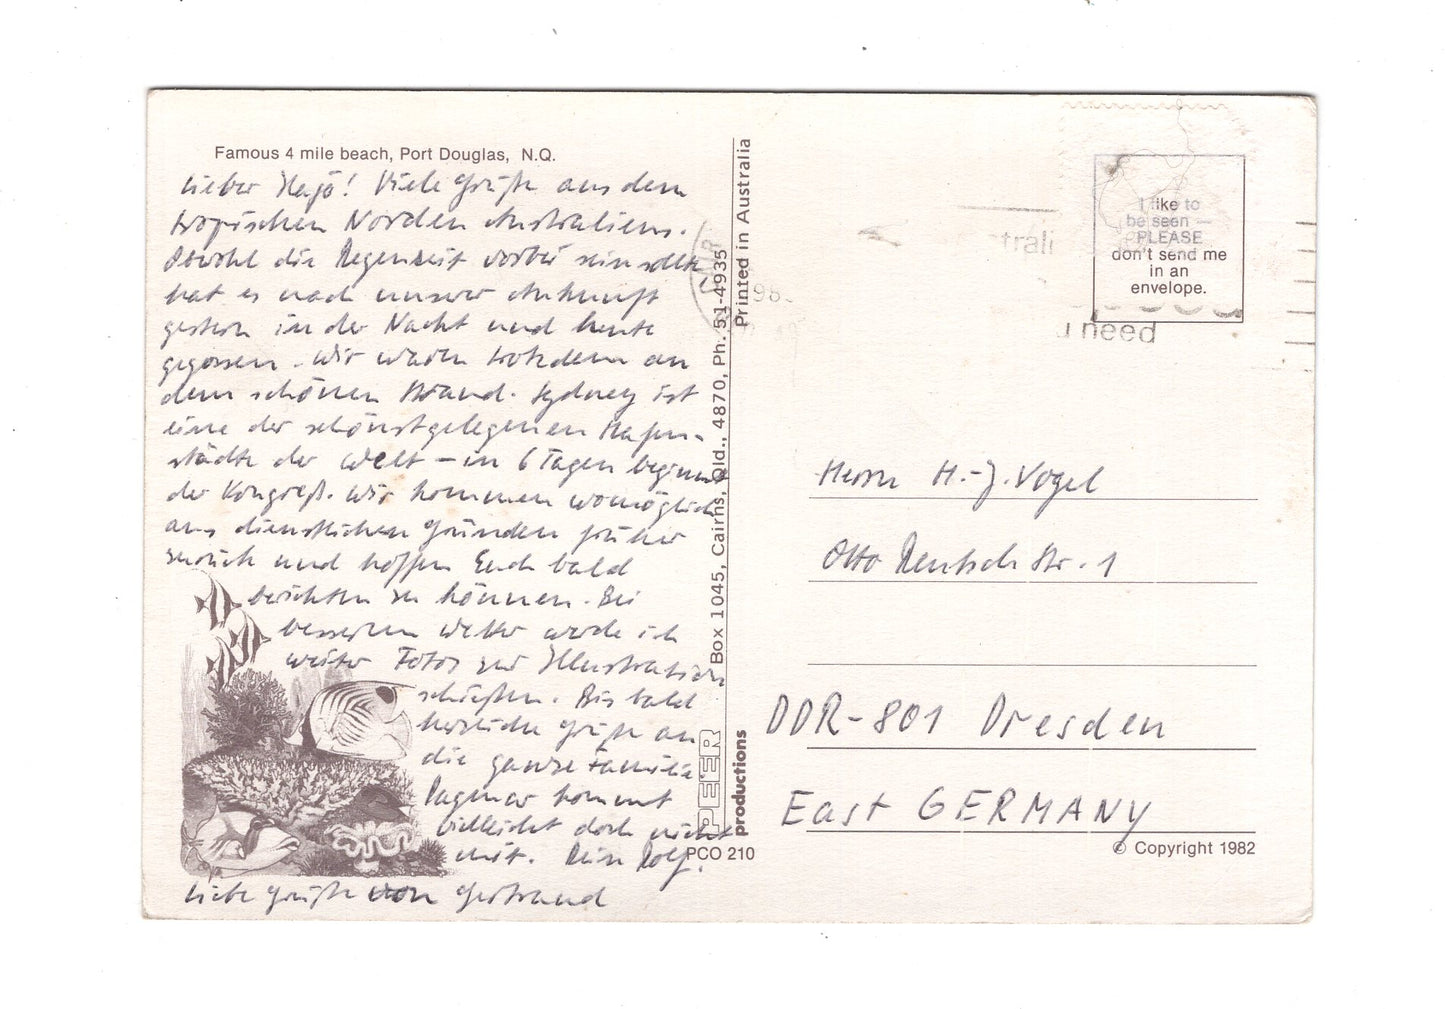 Famous 4 mile beach, Port Douglas, N.Q.
Lieber Hajo! Viele Grüße aus dem
tropischen Norden Australiens.
Obwohl die Regenzeit vorbei sein sollte
hat es nach unserer Ankunft
gestern in der Nacht und heute
gegossen. Wir waren trotzdem an
dem schönen Strand. Sydney ist
eine der schönstgelegenen Hafen-
städte der Welt – in 6 Tagen beginnt
der Kongreß. Wir kommen womöglich
aus dienstlichen Gründen früher
zurück und hoffen Euch bald
berichten zu können. Bei
besserem Wetter werde ich
weiter Fotos zur Illustration
schießen. Bis bald
herzliche Grüße an
die ganze Familie
Dagmar kommt
vielleicht doch nicht
mit. Dein Rolf.
Liebe Grüße von Gertraud
PEER
productions
Box 1045, Cairns, Qld., 4870, Ph. 51-4935
Printed in Australia
PCO 210
I like to
be seen —
PLEASE
don't send me
in an
envelope.
need
Herrn H.-J. Vogel
Otto Rentzsch Str. 1
DDR-801 Dresden
East GERMANY
© Copyright 1982